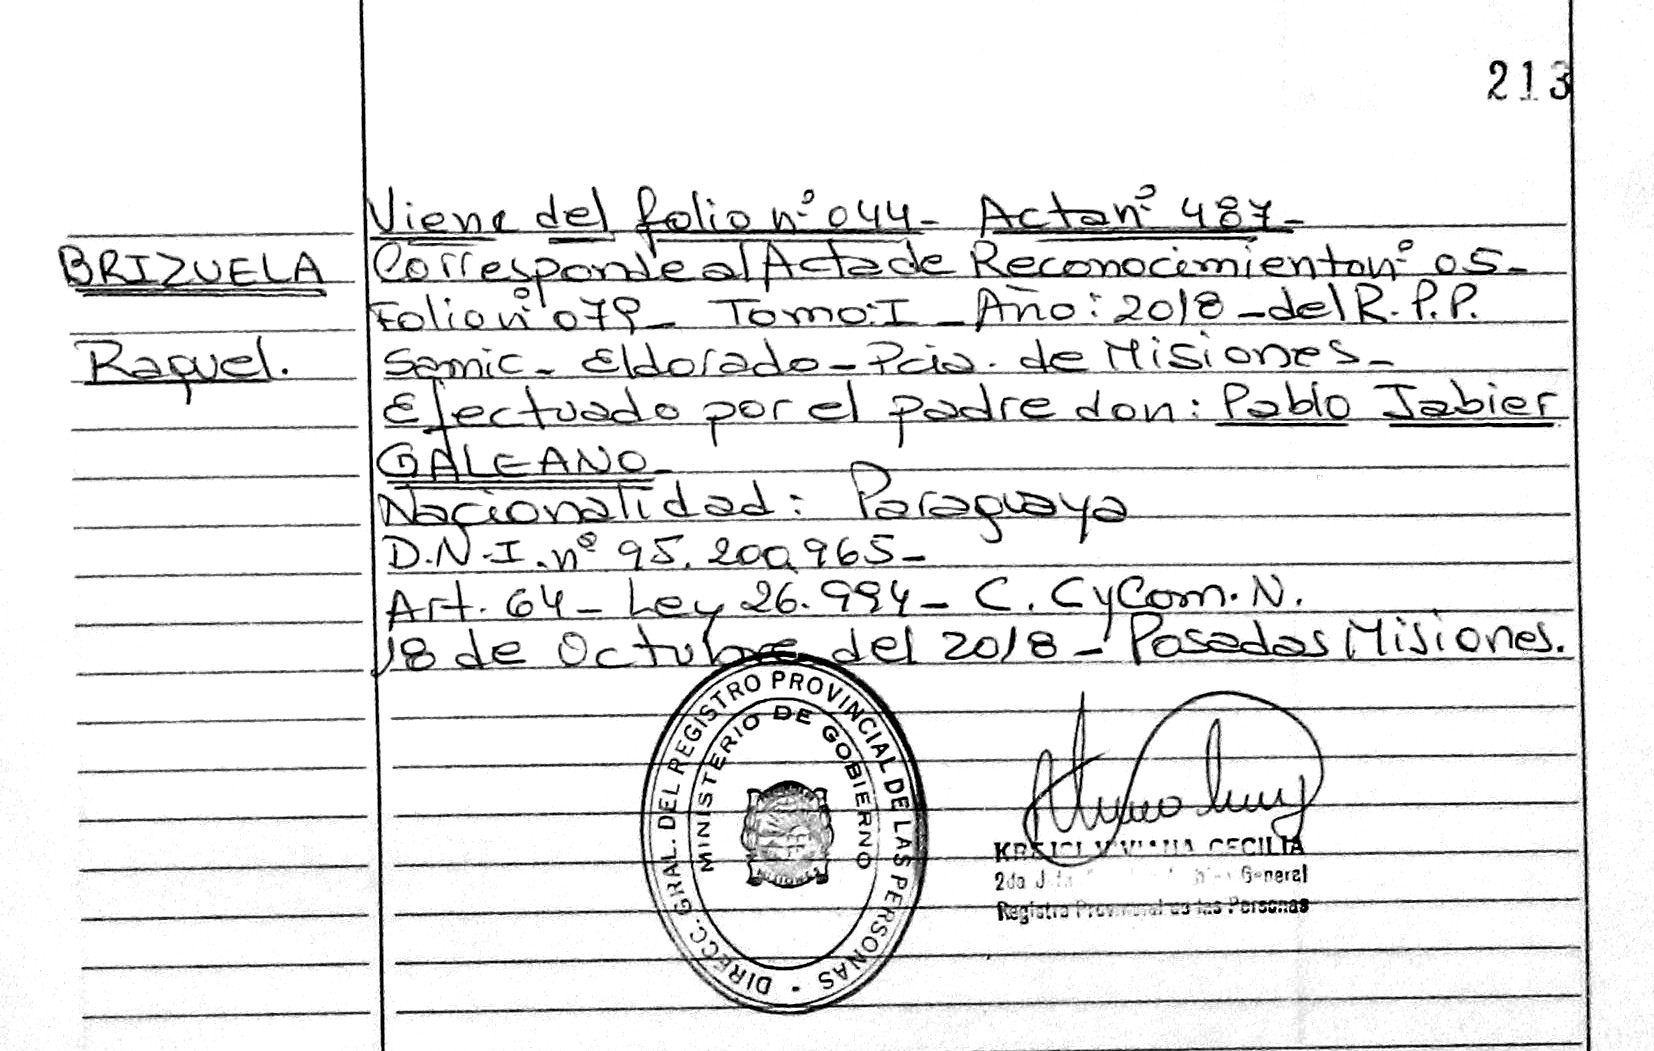 213
Viene del folio nº 044- Acta nº 487-
BRIZUELA
Corresponde al Acta de Reconocimiento nº 05-
Folio nº 079- Tomo: I - Año: 2018 - del R.P.P.
Raquel.
Samic - Eldorado - Pcia. de Misiones-
Efectuado por el padre don: Pablo Jabier
GALEANO-
Nacionalidad: Paraguaya
D.N.I. nº 95.200.965-
Art. 64 - Ley 26.994 - C. CyCom. N.
18 de Octubre del 2018 - Posadas Misiones.
DIRECC. GRAL. DEL REGISTRO PROVINCIAL DE LAS PERSONAS
MINISTERIO DE GOBIERNO
CECILIA
2da General
Registro Provincial de las Personas